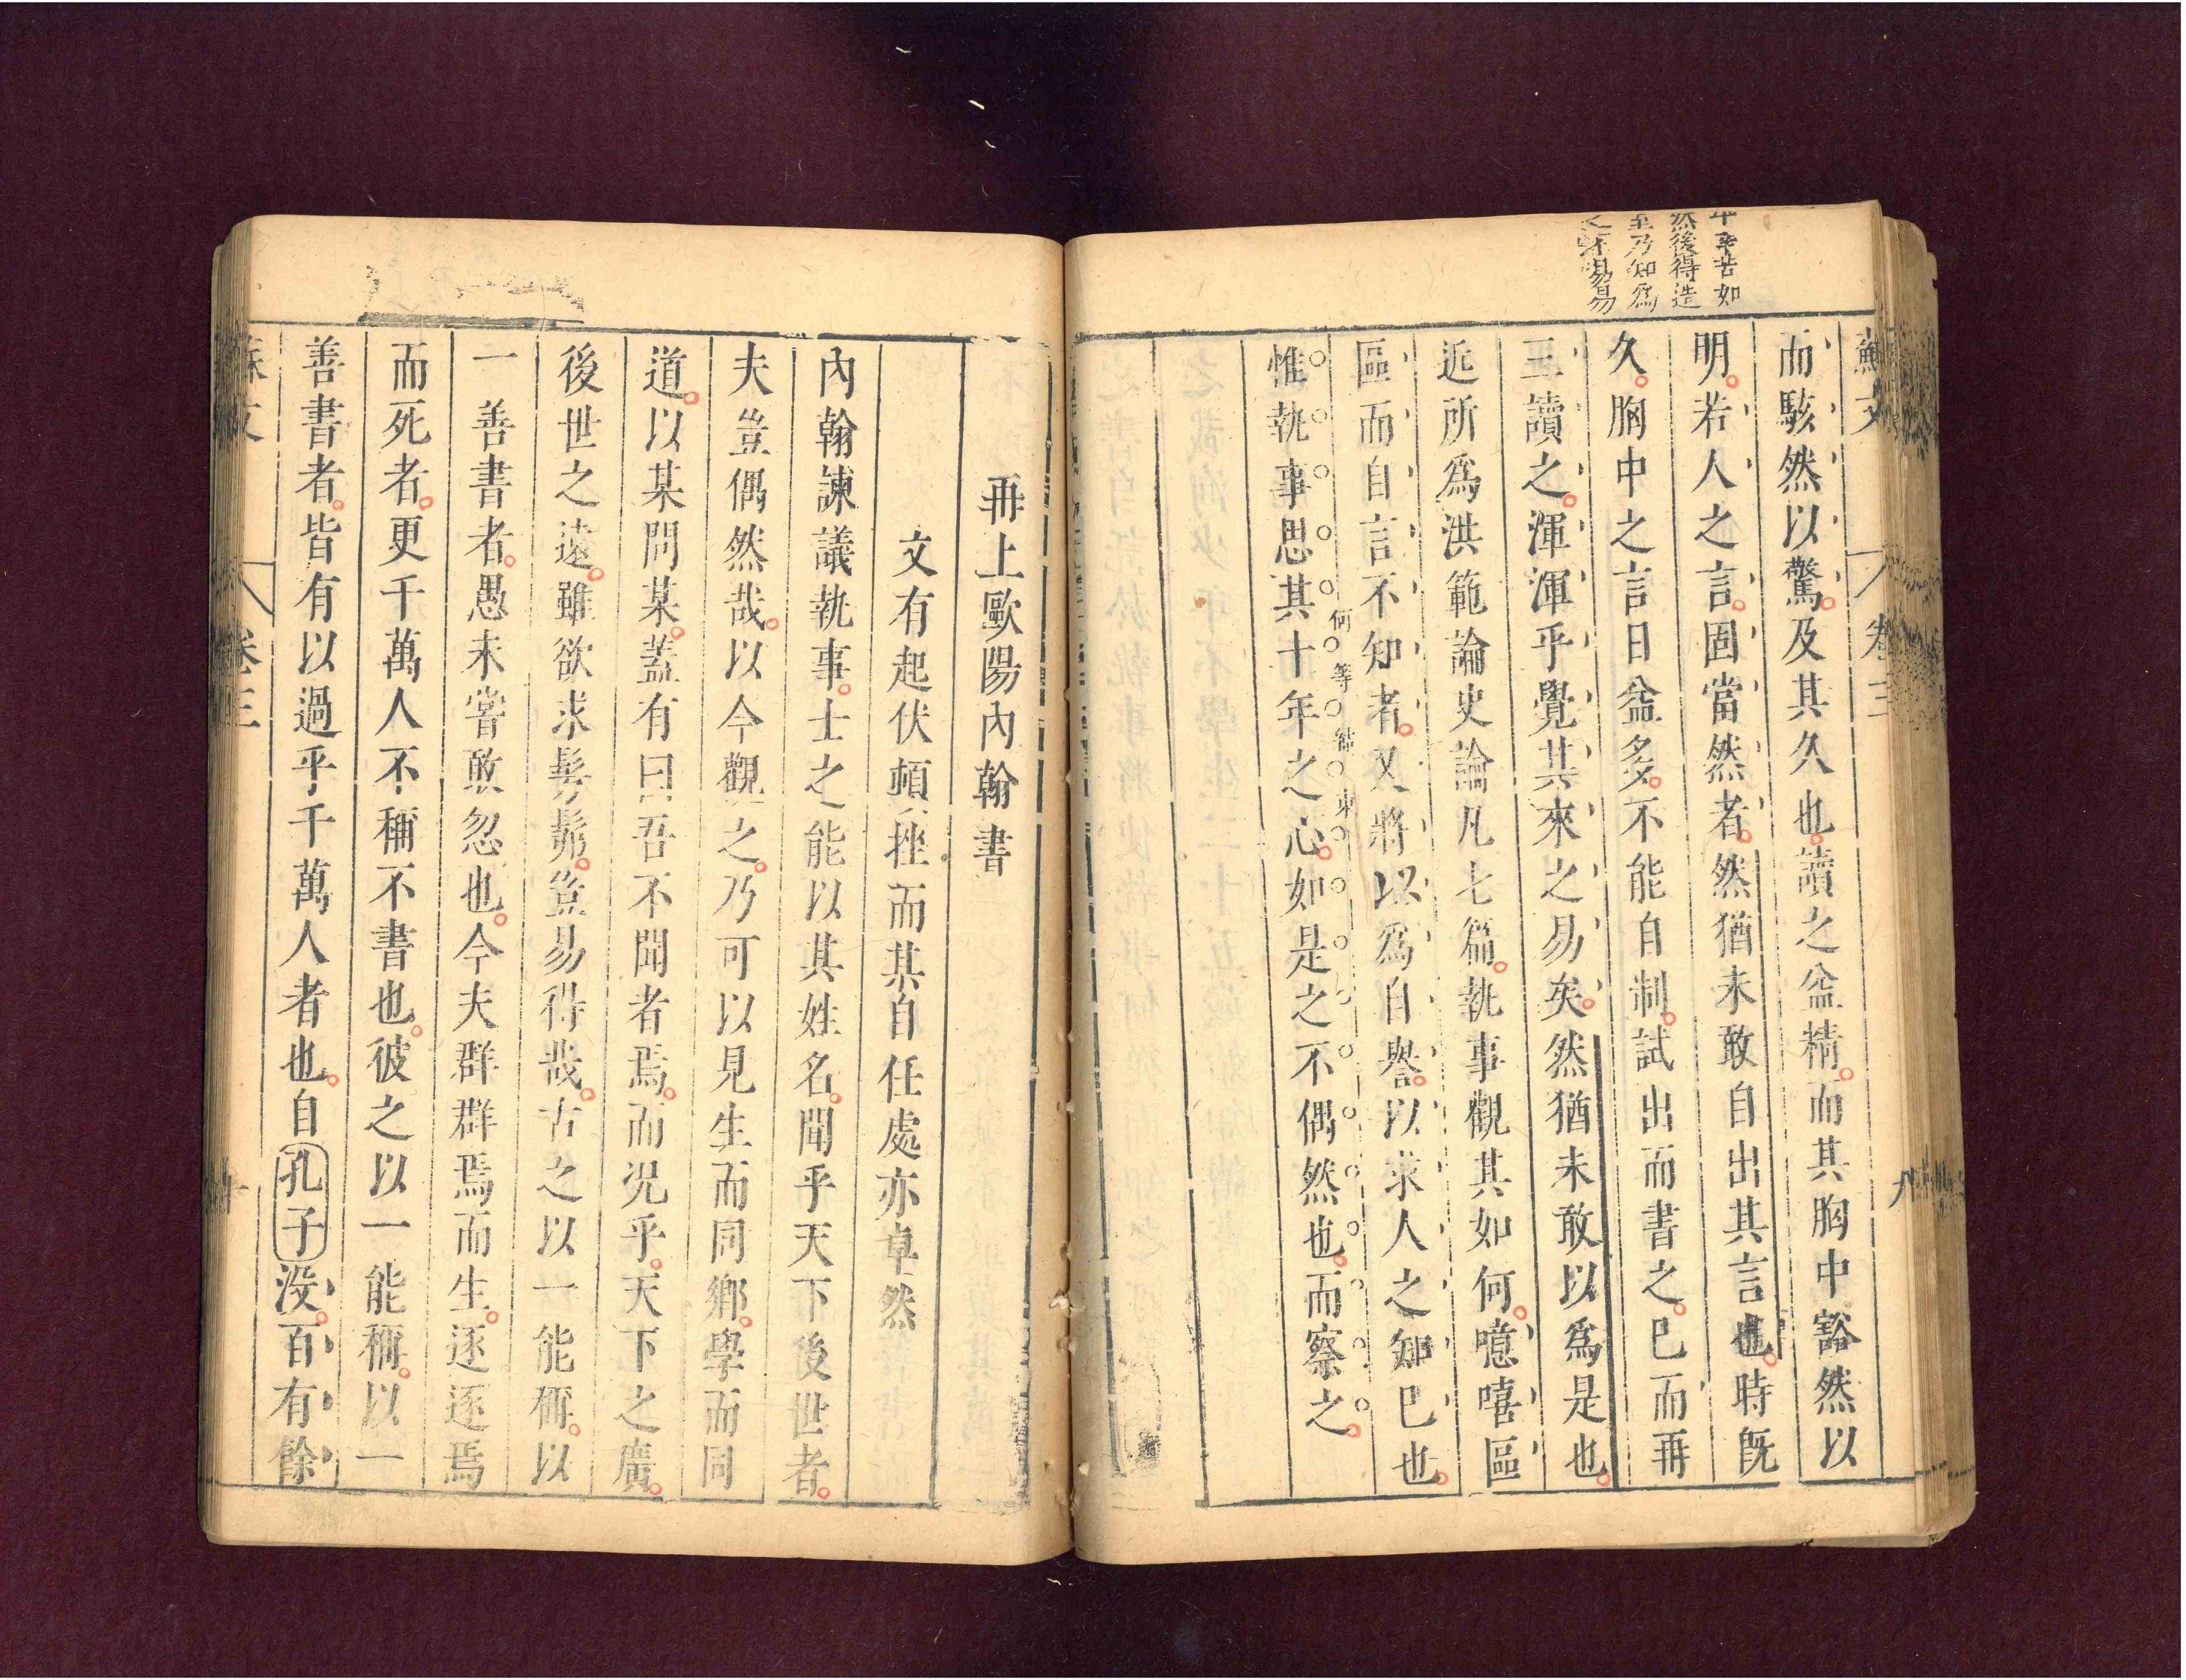 辛苦如
然後得造
至乃知爲
之不易易
蘇文 卷三 九
而駭然以驚及其久也讀之益精而其胸中豁然以
明若人之言固當然者然猶未敢自出其言也時旣
久胸中之言日益多不能自制試出而書之巳而再
三讀之渾渾乎覺其來之易矣然猶未敢以爲是也
近所爲洪範論史論凡七篇執事觀其如何噫嘻區
區而自言不知者又將以爲自譽以求人之知巳也
何等結束
惟執事思其十年之心如是之不偶然也而察之
再上歐陽內翰書
文有起伏頓挫而其自任處亦卓然
內翰諫議執事士之能以其姓名聞乎天下後世者
夫豈偶然哉以今觀之乃可以見生而同鄉學而同
道以某問某蓋有曰吾不聞者焉而況乎天下之廣
後世之遠雖欲求髣髴豈易得哉古之以一能稱以
一善書者愚未嘗敢忽也今夫群群焉而生逐逐焉
而死者更千萬人不稱不書也彼之以一能稱以一
善書者皆有以過乎千萬人者也自孔子沒百有餘
蘇文 卷三 十